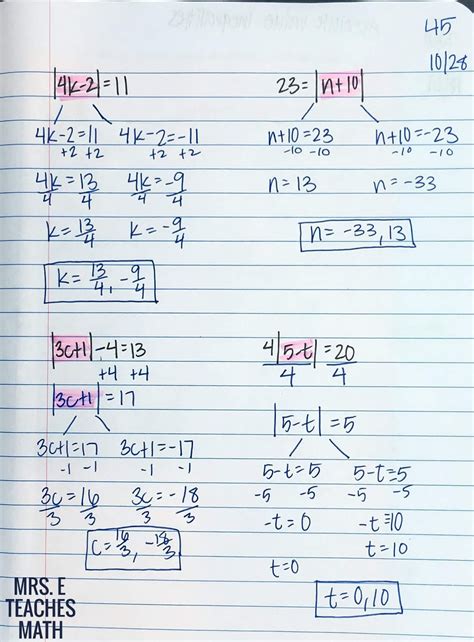 45
10/28
|4k-2|=11
4k-2=11 4k-2=-11
+2 +2 +2 +2
4k=13 4k=-9
4 4 4 4
k=13/4 k=-9/4
k=13/4, -9/4
23=|n+10|
n+10=23 n+10=-23
-10 -10 -10 -10
n=13 n=-33
n=-33, 13
|3c+1|-4=13
+4 +4
|3c+1|=17
3c+1=17 3c+1=-17
-1 -1 -1 -1
3c=16 3c=-18
3 3 3 3
c=16/3, -18/3
4|5-t|=20
4 4
|5-t|=5
5-t=5 5-t=5
-5 -5 -5 -5
-t=0 -t=-10
t=0 t=10
t=0,10
MRS. E
TEACHES
MATH